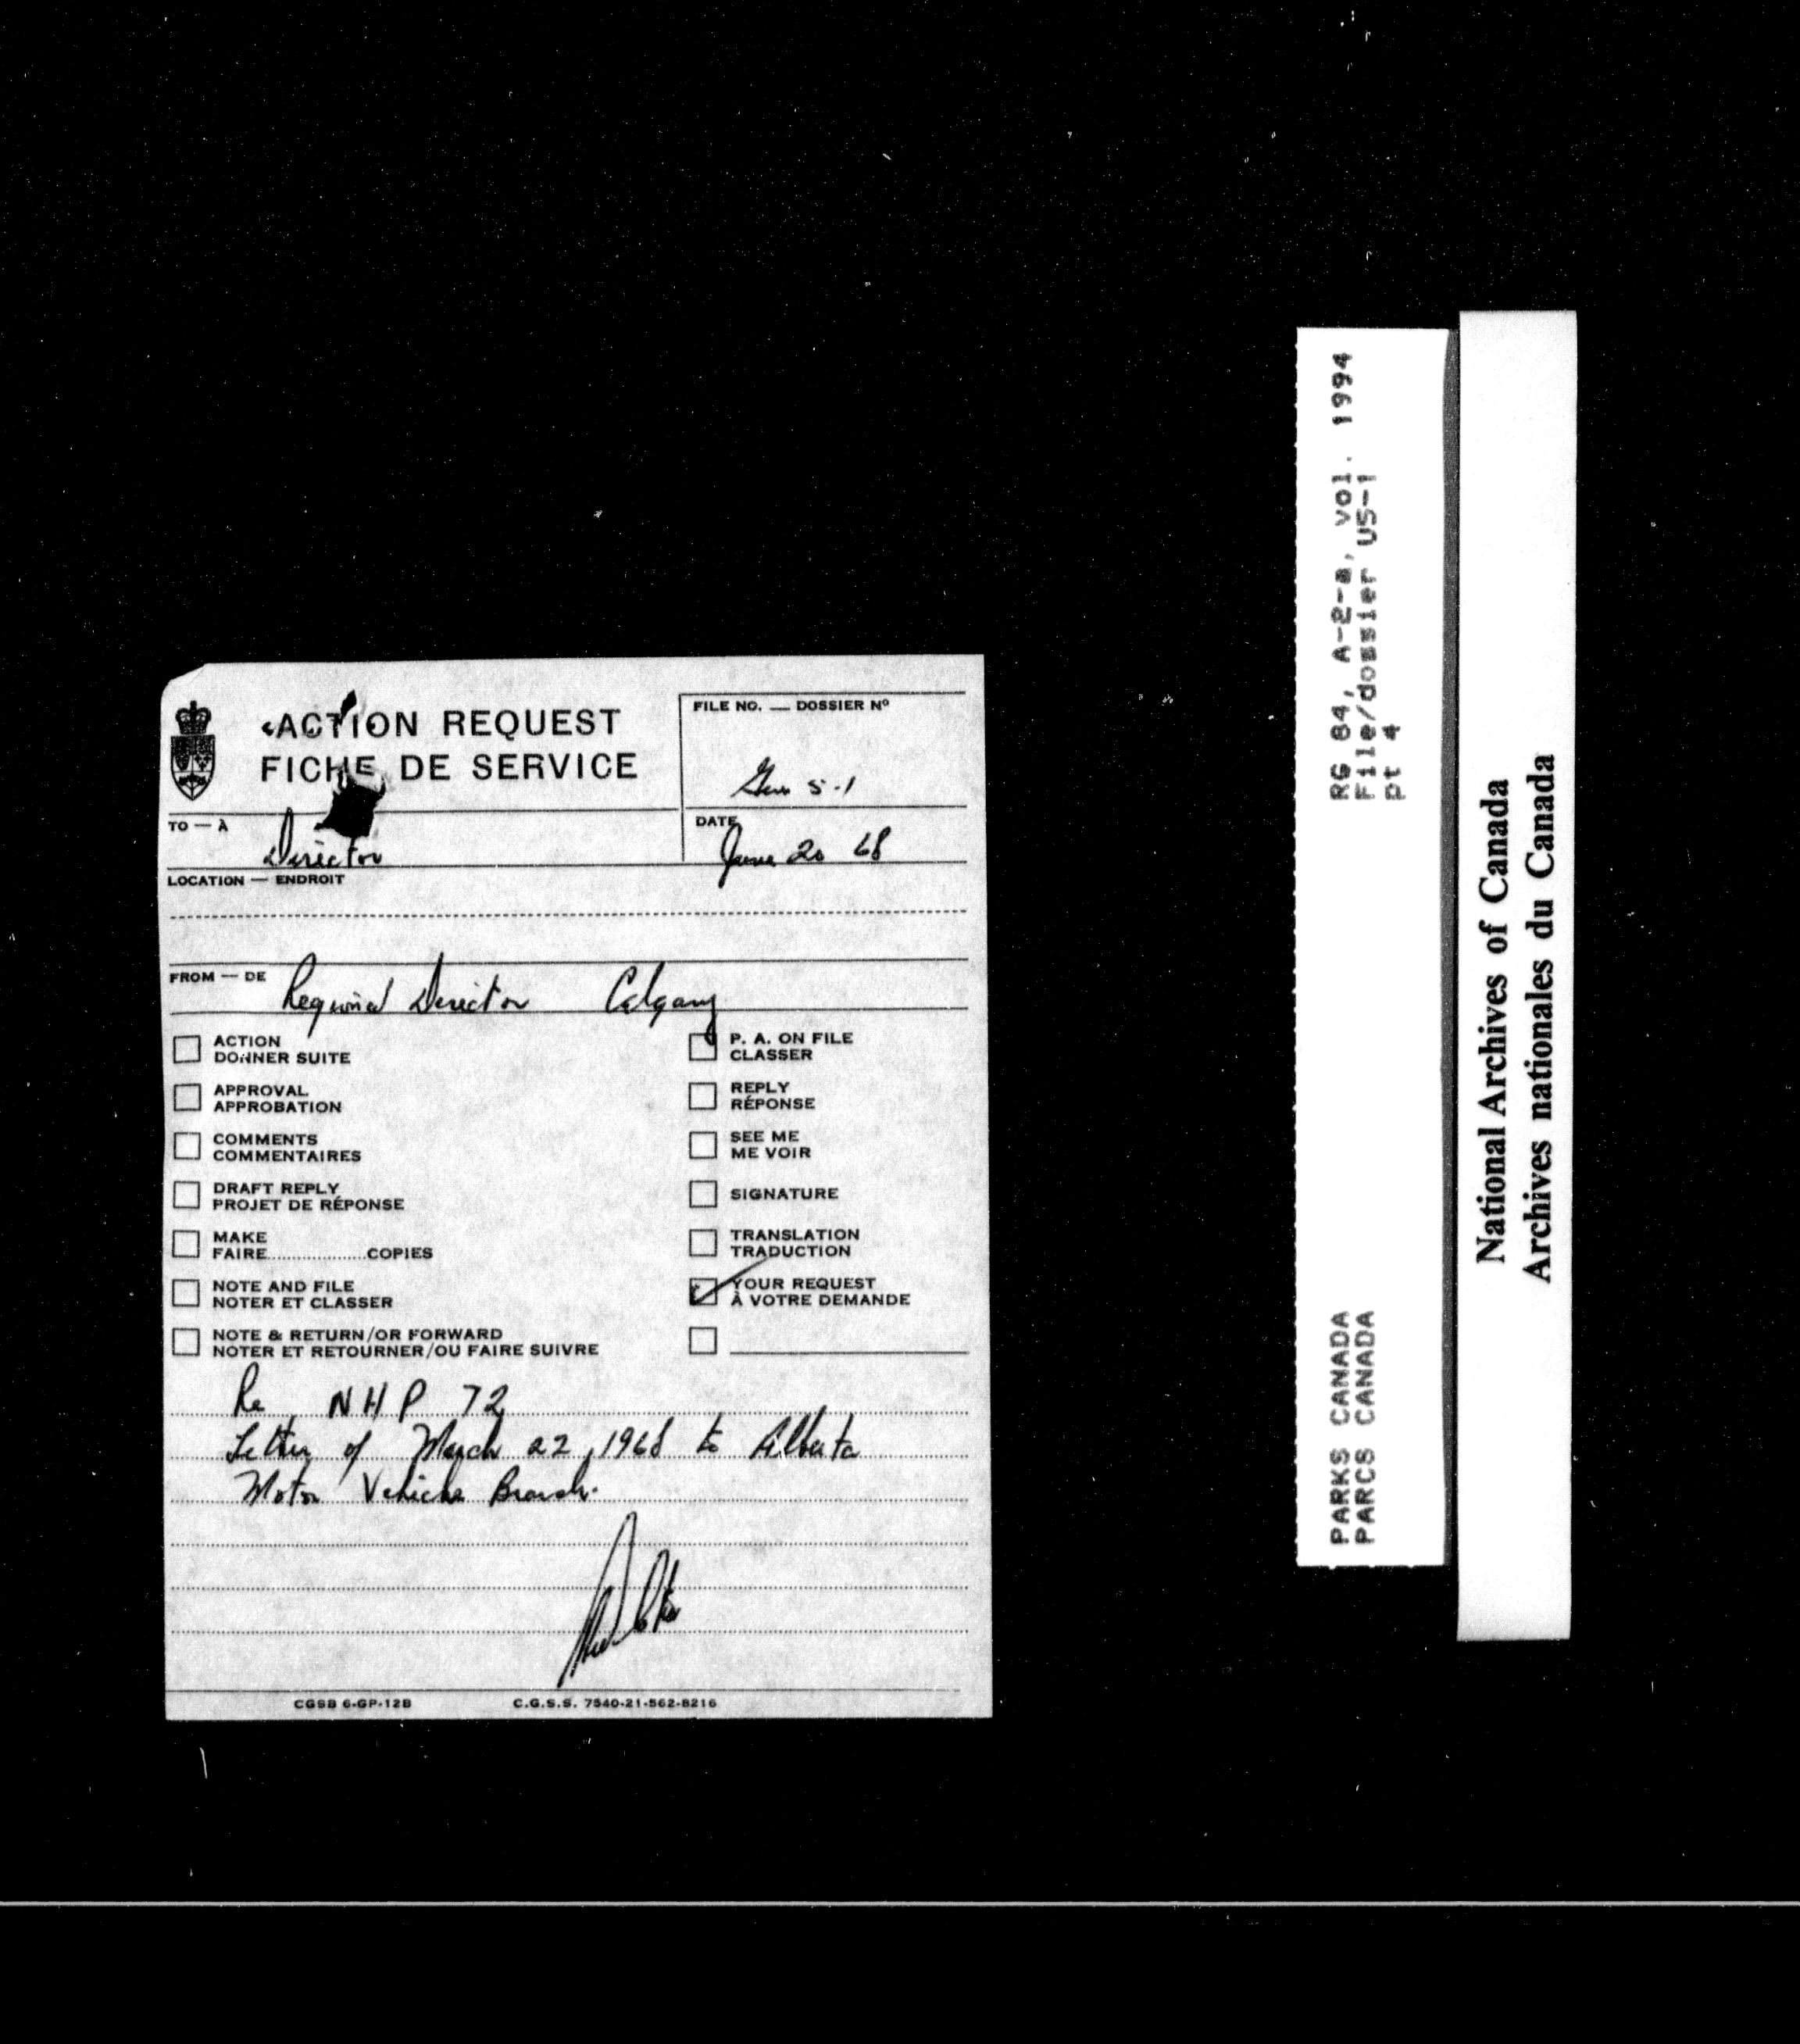 ACTION REQUEST
FICHE DE SERVICE
FILE NO. — DOSSIER Nº
5-1
TO — À
Director
DATE
June 20 68
LOCATION — ENDROIT
FROM — DE
Regional Director Calgary
ACTION
DONNER SUITE
APPROVAL
APPROBATION
COMMENTS
COMMENTAIRES
DRAFT REPLY
PROJET DE RÉPONSE
MAKE
FAIRE..................COPIES
NOTE AND FILE
NOTER ET CLASSER
NOTE & RETURN/OR FORWARD
NOTER ET RETOURNER/OU FAIRE SUIVRE
P. A. ON FILE
CLASSER
REPLY
RÉPONSE
SEE ME
ME VOIR
SIGNATURE
TRANSLATION
TRADUCTION
YOUR REQUEST
À VOTRE DEMANDE
Re NHP 72
Letter of March 22, 1968 to Alberta
Motor Vehicle Branch.
CGSB 6-GP-12B
C.G.S.S. 7540-21-562-8216
PARKS CANADA RG 84, A-2-a, vol. 1994
PARCS CANADA File/dossier US-1
pt 4
National Archives of Canada
Archives nationales du Canada